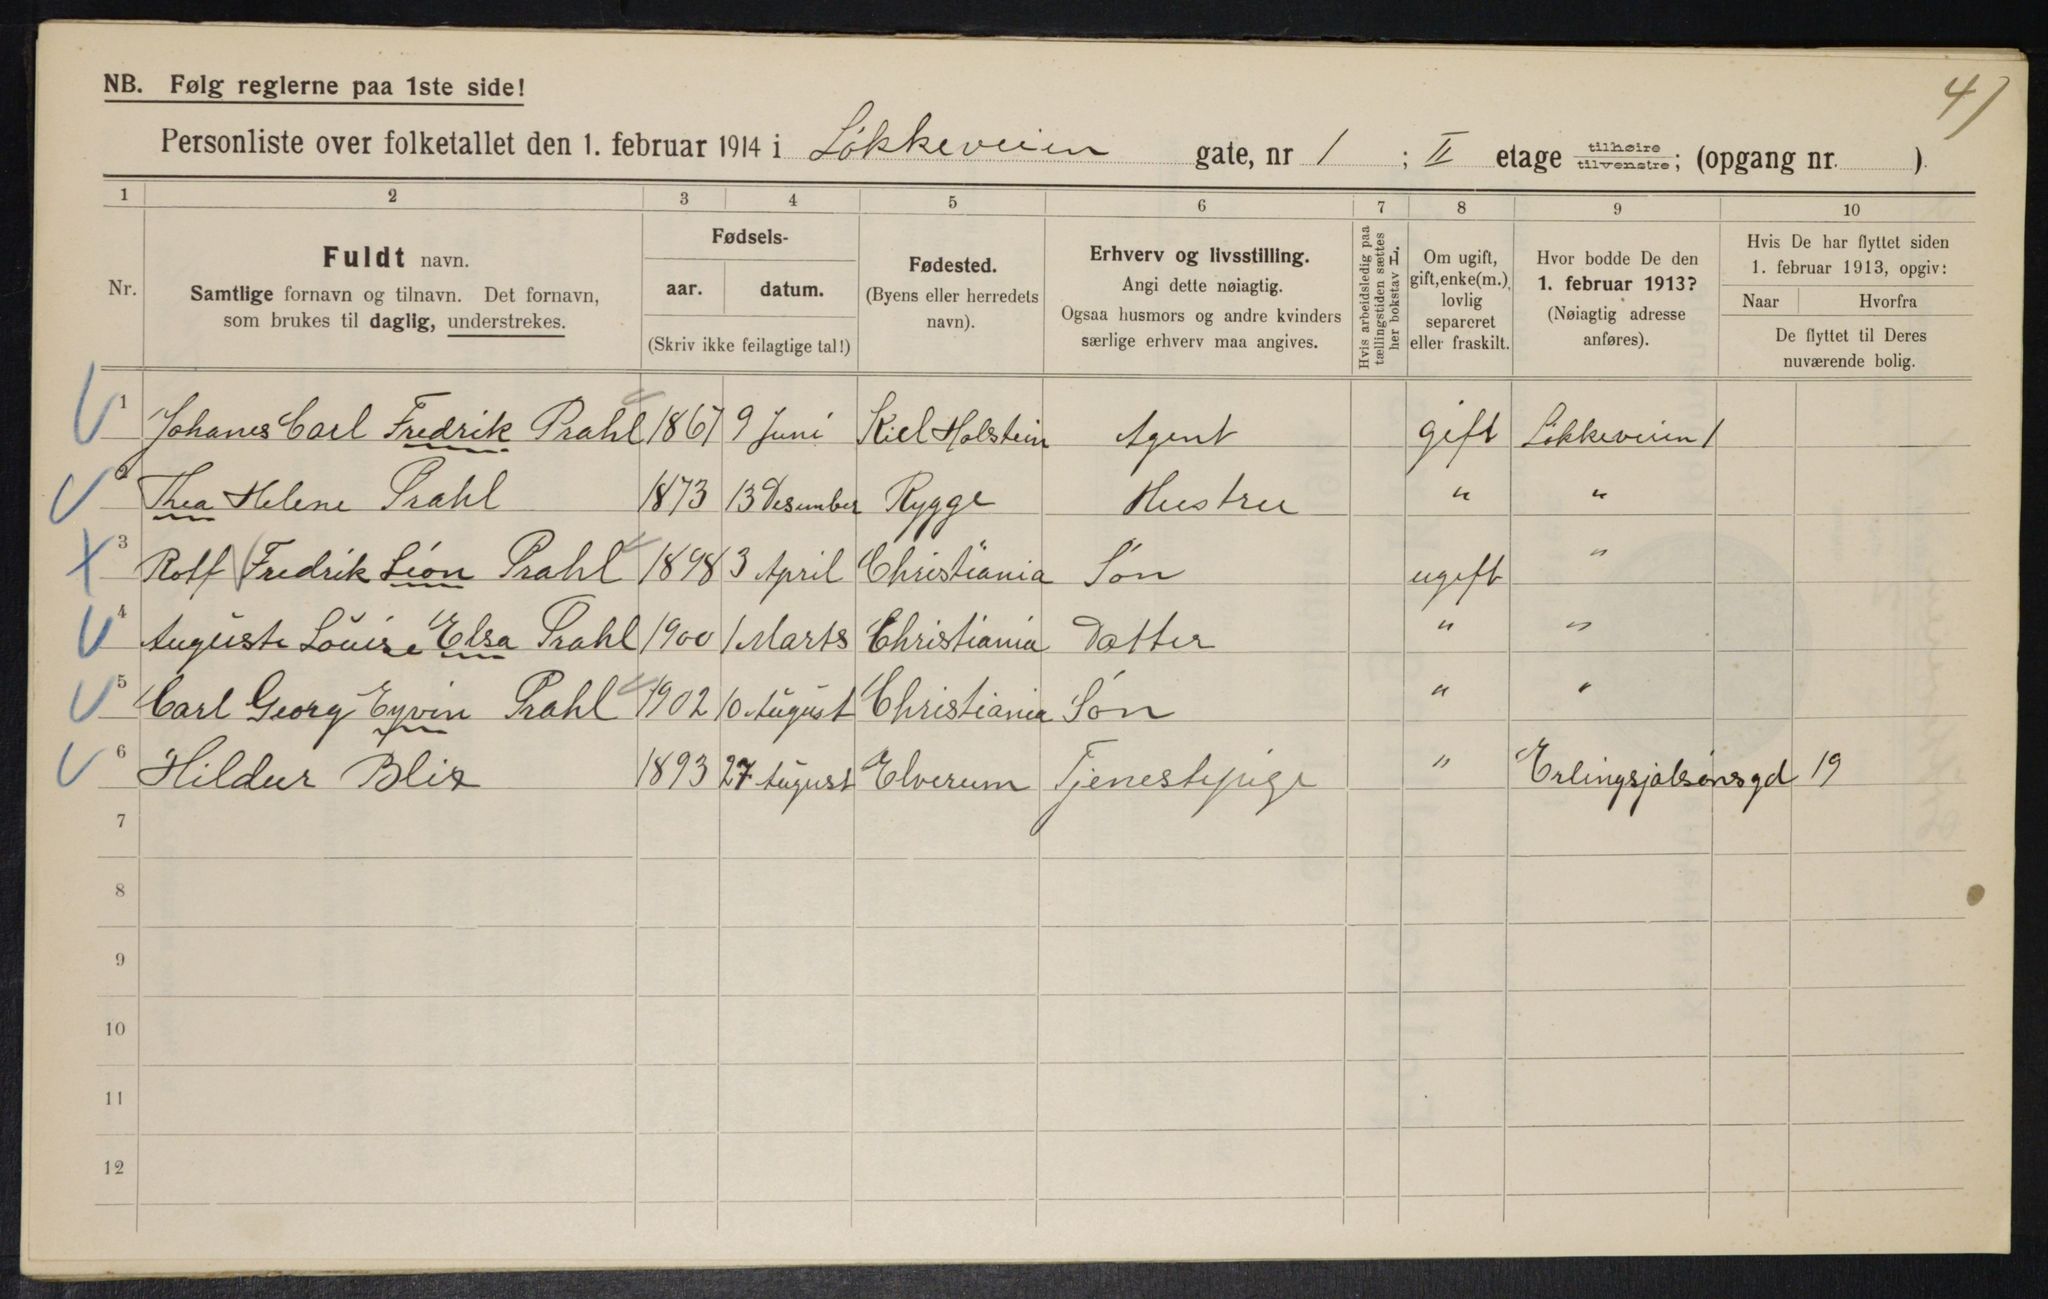 47
NB. Følg reglerne paa 1ste side!
Personliste over folketallet den 1. februar 1914 i Løkkeveien gate, nr 1 ; II etage tilhøire tilvenstre; (opgang nr. ).
1 2 3 4 5 6 7 8 9 10
Nr.
Fuldt navn.
Samtlige fornavn og tilnavn. Det fornavn,
som brukes til daglig, understrekes.
Fødsels-
aar. datum.
(Skriv ikke feilagtige tal!)
Fødested.
(Byens eller herredets
navn).
Erhverv og livsstilling.
Angi dette nøiagtig.
Ogsaa husmors og andre kvinders
særlige erhverv maa angives.
Hvis arbeidsledig paa
tællingstiden sættes
her bokstav L.
Om ugift,
gift, enke(m.),
lovlig
separeret
eller fraskilt.
Hvor bodde De den
1. februar 1913?
(Nøiagtig adresse
anføres).
Hvis De har flyttet siden
1. februar 1913, opgiv:
Naar Hvorfra
De flyttet til Deres
nuværende bolig.
1 Johanes Carl Fredrik Prahl 1867 9 Juni Kiel Holstein Agent gift Løkkeveien 1
2 Thea Helene Prahl 1873 13 Desember Rygge Hustru " "
3 Rolf Fredrik Léon Prahl 1898 3 April Christiania Søn ugift "
4 Auguste Louise Elsa Prahl 1900 1 Marts Christiania Datter " "
5 Carl Georg Eyvin Prahl 1902 10 August Christiania Søn " "
6 Hildur Blix 1893 27 August Elverum Tjenestepige " Erlingsjalsønsgd 19
7
8
9
10
11
12